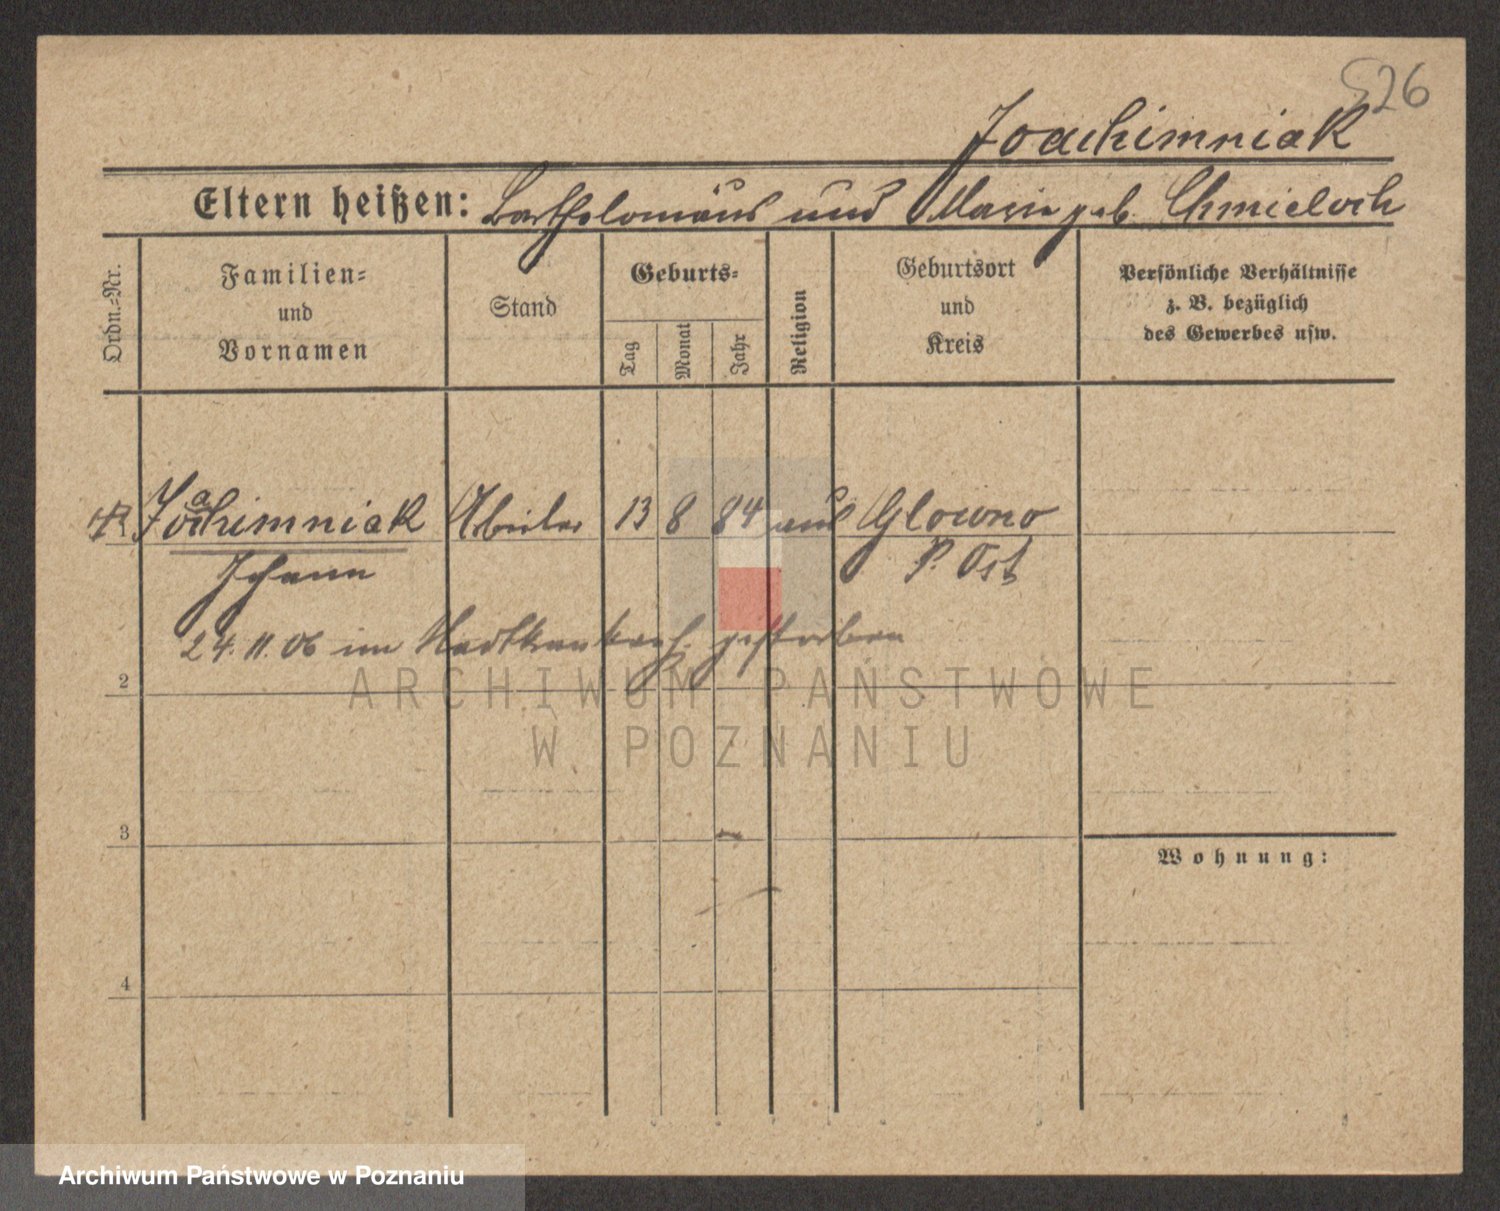 526
Joachimniak
Eltern heißen: Bartholomäus und Marie geb. Chmieloch
Ordn.-Nr.
Familien-
und
Vornamen
Stand
Geburts-
Tag
Monat
Jahr
Religion
Geburtsort
und
Kreis
Persönliche Verhältnisse
z. B. bezüglich
des Gewerbes usw.
Joachimniak Arbeiter 13 8 84 Glowno
Johann P. Ost
24. 11. 06 im gestorben
2
3
Wohnung:
4
ARCHIWUM PAŃSTWOWE
W POZNANIU
Archiwum Państwowe w Poznaniu